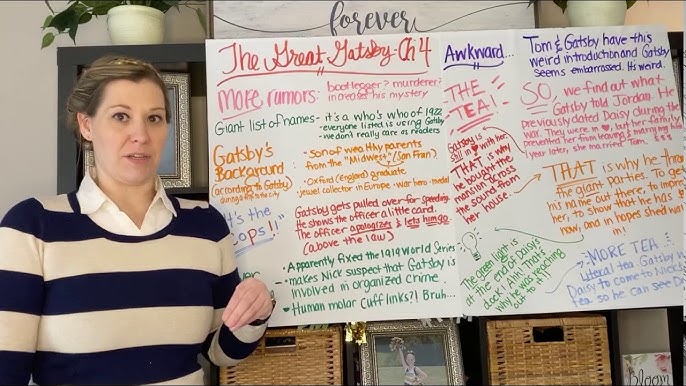 forever
The Great Gatsby-Ch 4
More rumors: bootlegger? murderer?
increases his mystery
Giant list of names - it's a who's who of 1922
- everyone listed is using Gatsby
- we don't really care as readers
Gatsby's
Background
(according to Gatsby)
during a trip to the city
- Son of wealthy parents
from the "Midwest" (San Fran)
- Oxford (England) graduate
- jewel collector in Europe - war hero - medal
It's the
Cops!!"
Gatsby gets pulled over for speeding.
He shows the officer a little card.
The officer apologizes & lets him go
(above the law)
- Apparently fixed the 1919 World Series
- makes Nick suspect that Gatsby is
involved in organized crime.
- Human molar Cufflinks?! Bruh...
Awkward...
Tom & Gatsby have this
weird introduction and Gatsby
seems embarrassed. It's weird.
THE
TEA!
SO, we find out what
Gatsby told Jordan. He
previously dated Daisy during the
war. They were in ♥, but her family
prevented her from leaving & marrying him
year later, she married Tom.
Gatsby is
still in ♥ with her.
THAT is why
he bought the
mansion across
the sound from
her house.
THAT is why he
the giant parties. To get
his name out there, to impress
her, to show that he has $
now, and in hopes she'd
in.
The green light is
at the end of Daisy's
dock! Ahh. That's
why he was reaching
out to it!
MORE TEA
Literal tea. Gatsby
Daisy to come to Nick's
tea so he can see
bloom